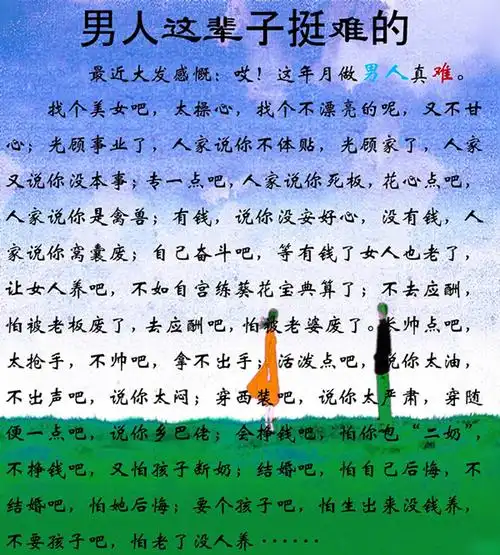 男人这辈子挺难的
最近大发感慨：哎！这年月做男人真难。
找个美女吧，太操心，找个不漂亮的呢，又不甘
心；光顾事业了，人家说你不体贴，光顾家了，人家
又说你没本事；专一点吧，人家说你死板，花心点吧，
人家说你是禽兽；有钱，说你没安好心，没有钱，人
家说你窝囊废；自己奋斗吧，等有钱了女人也老了，
让女人养吧，不如自宫练葵花宝典算了；不去应酬，
怕被老板废了，去应酬吧，怕被老婆废了。长帅点吧，
太抢手，不帅吧，拿不出手；活泼点吧，说你太油，
不出声吧，说你太闷；穿西装吧，说你太严肃，穿随
便一点吧，说你乡巴佬；会挣钱吧，怕你包“二奶”，
不挣钱吧，又怕孩子断奶；结婚吧，怕自己后悔，不
结婚吧，怕她后悔；要个孩子吧，怕生出来没钱养，
不要孩子吧，怕老了没人养……